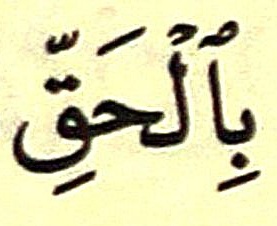 بِٱلْحَقِّ